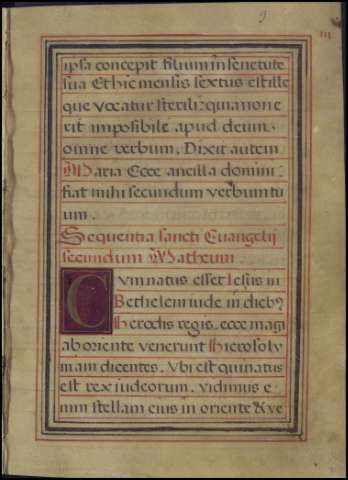 9
iii
ipsa concepit filium in senetute
sua Et hic mensis sextus est ille
que vocatur sterilis: quia non e
rit imposibile apud deum.
omne verbum. Dixit autem
Maria Ecce ancilla domini:
fiat mihi secundum verbum tu
um.
Sequentia sancti Euangelij
secundum Matheum
Cum natus esset Iesus in
Bethelem iude in dieb9
Herodis regis. ecce magi
ab oriente venerunt Hierosoly
mam dicentes. Vbi est qui natus
est rex iudeorum. vidimus e
nim stellam eius in oriente & ve